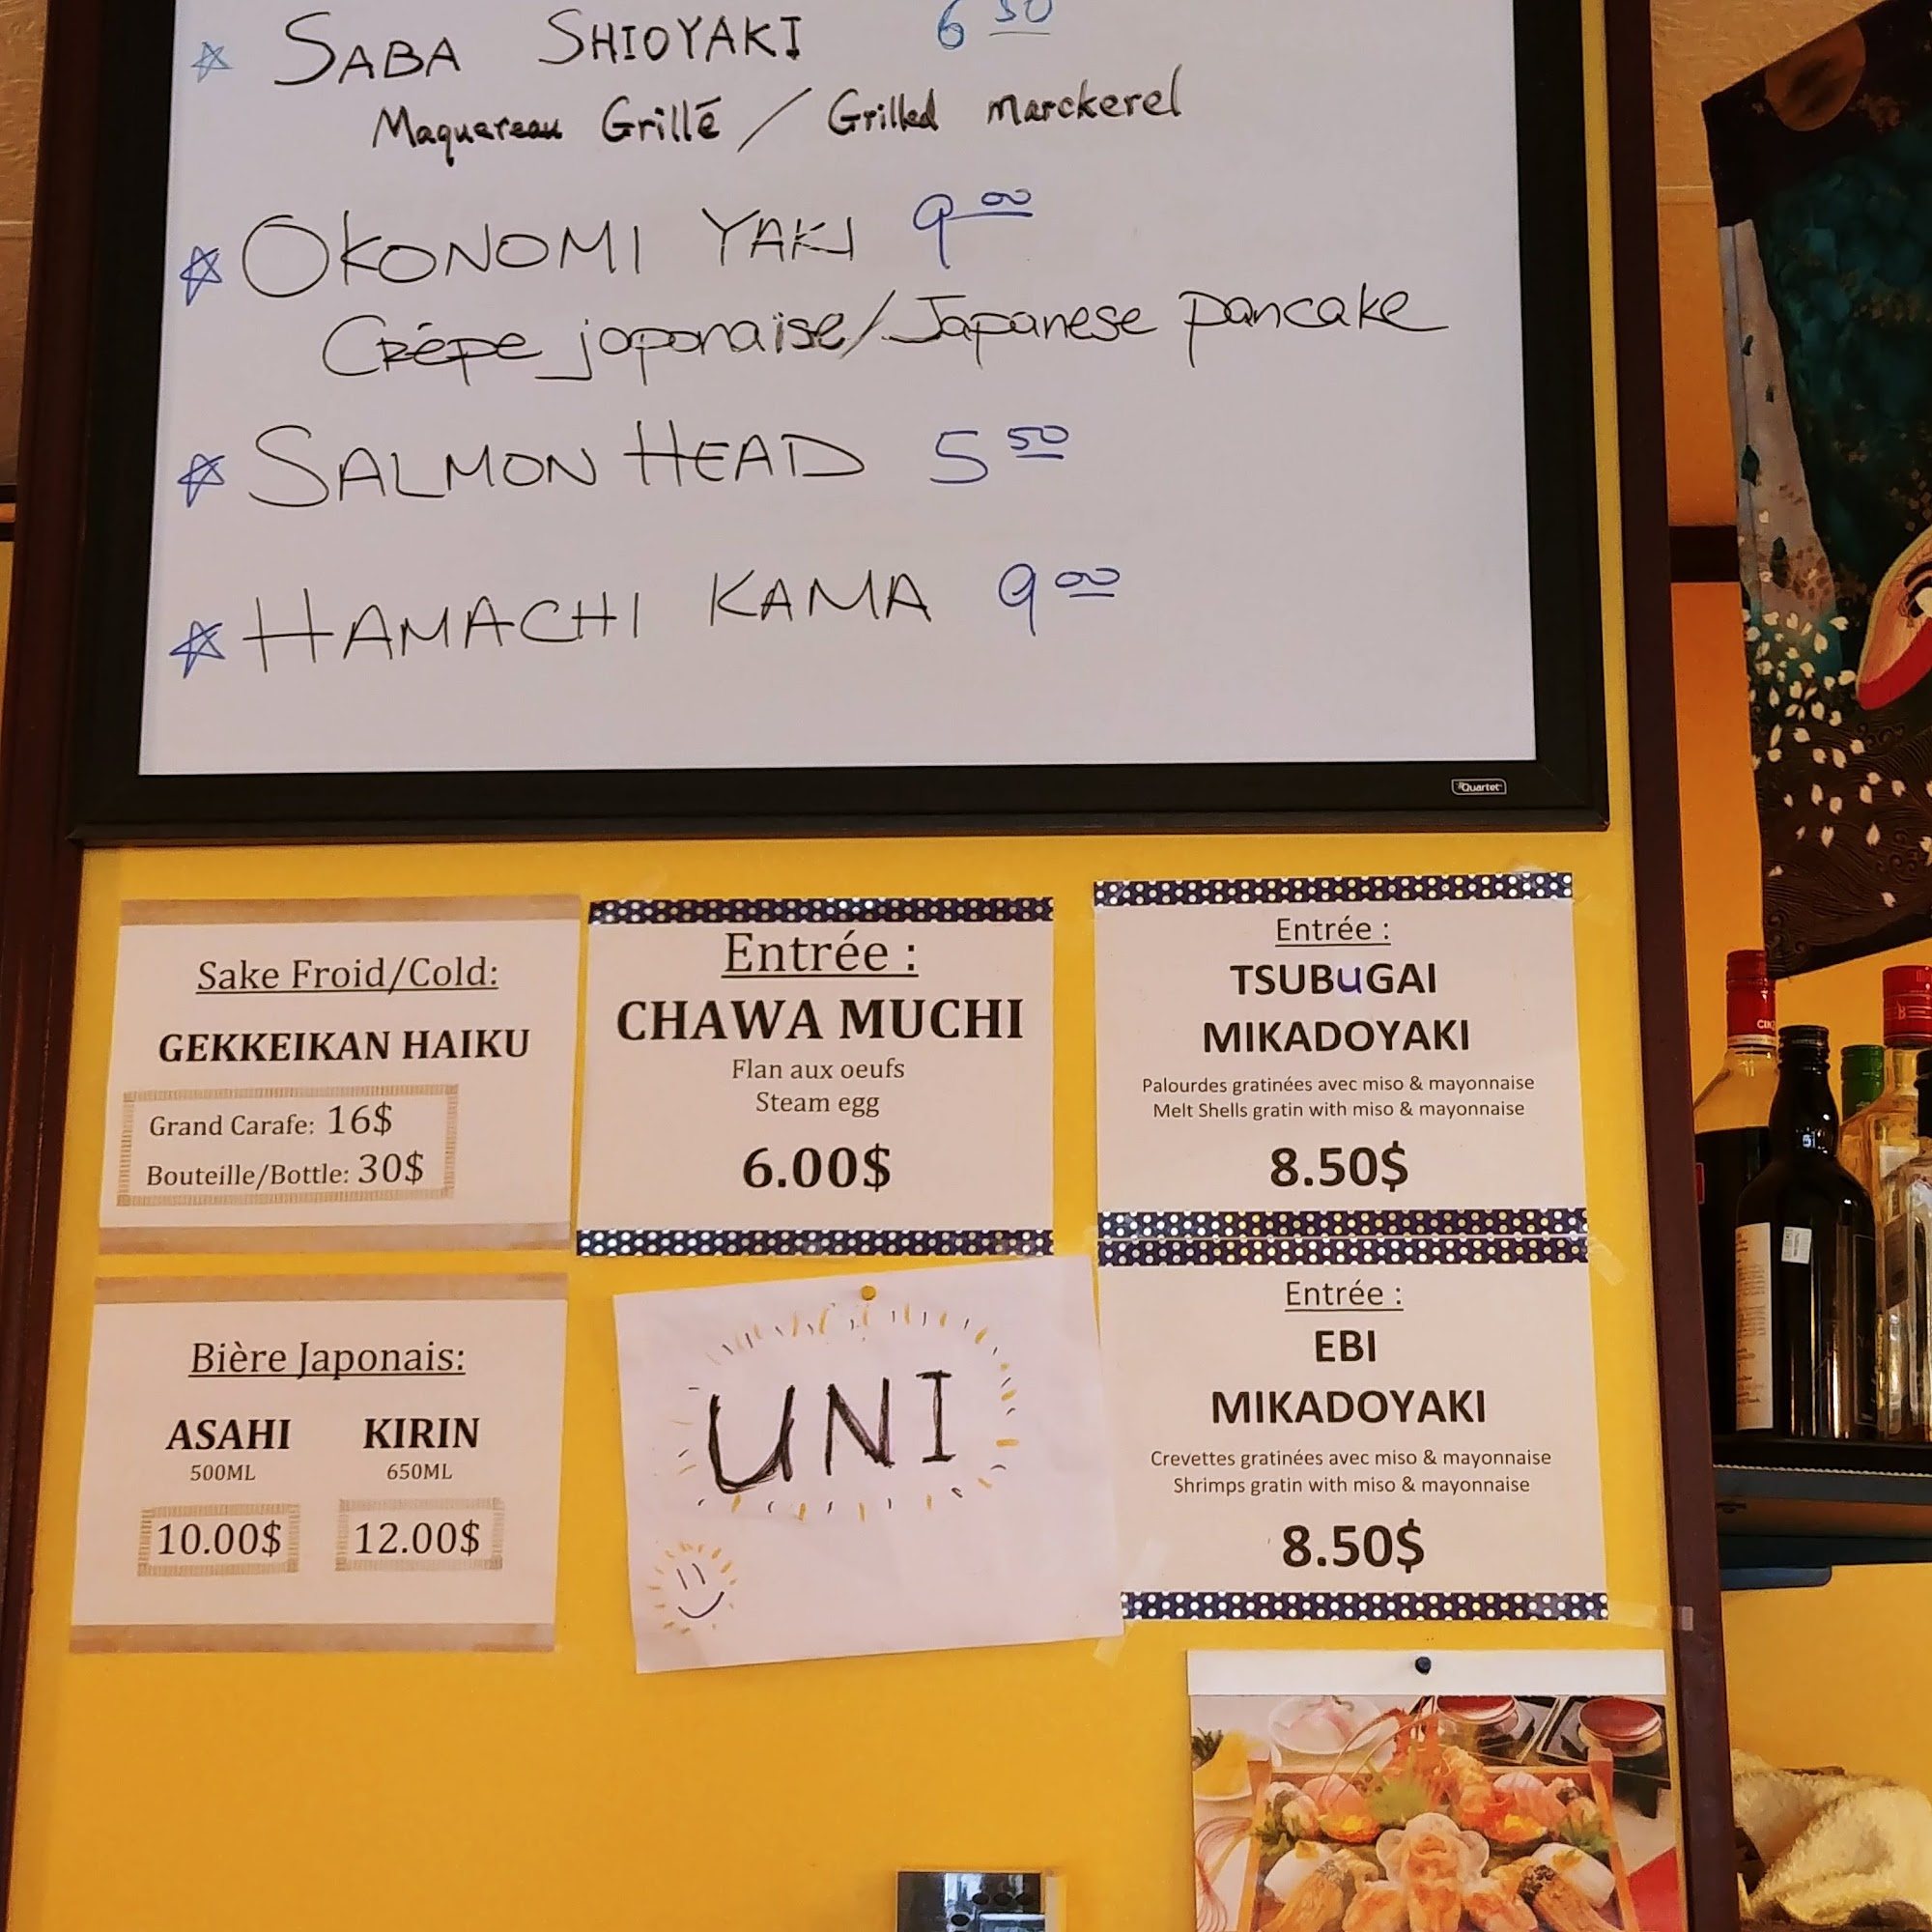 SABA SHIOYAKI 6 50
Maquereau Grillé / Grilled marckerel
OKONOMI YAKI 9 00
Crêpe japonaise/Japanese pancake
SALMON HEAD 5 50
HAMACHI KAMA 9 00
Quartet
Sake Froid/Cold:
GEKKEIKAN HAIKU
Grand Carafe: 16$
Bouteille/Bottle: 30$
Entrée :
CHAWA MUCHI
Flan aux oeufs
Steam egg
6.00$
Entrée :
TSUBuGAI
MIKADOYAKI
Palourdes gratinées avec miso & mayonnaise
Melt Shells gratin with miso & mayonnaise
8.50$
Bière Japonais:
ASAHI KIRIN
500ML 650ML
10.00$ 12.00$
UNI
Entrée :
EBI
MIKADOYAKI
Crevettes gratinées avec miso & mayonnaise
Shrimps gratin with miso & mayonnaise
8.50$